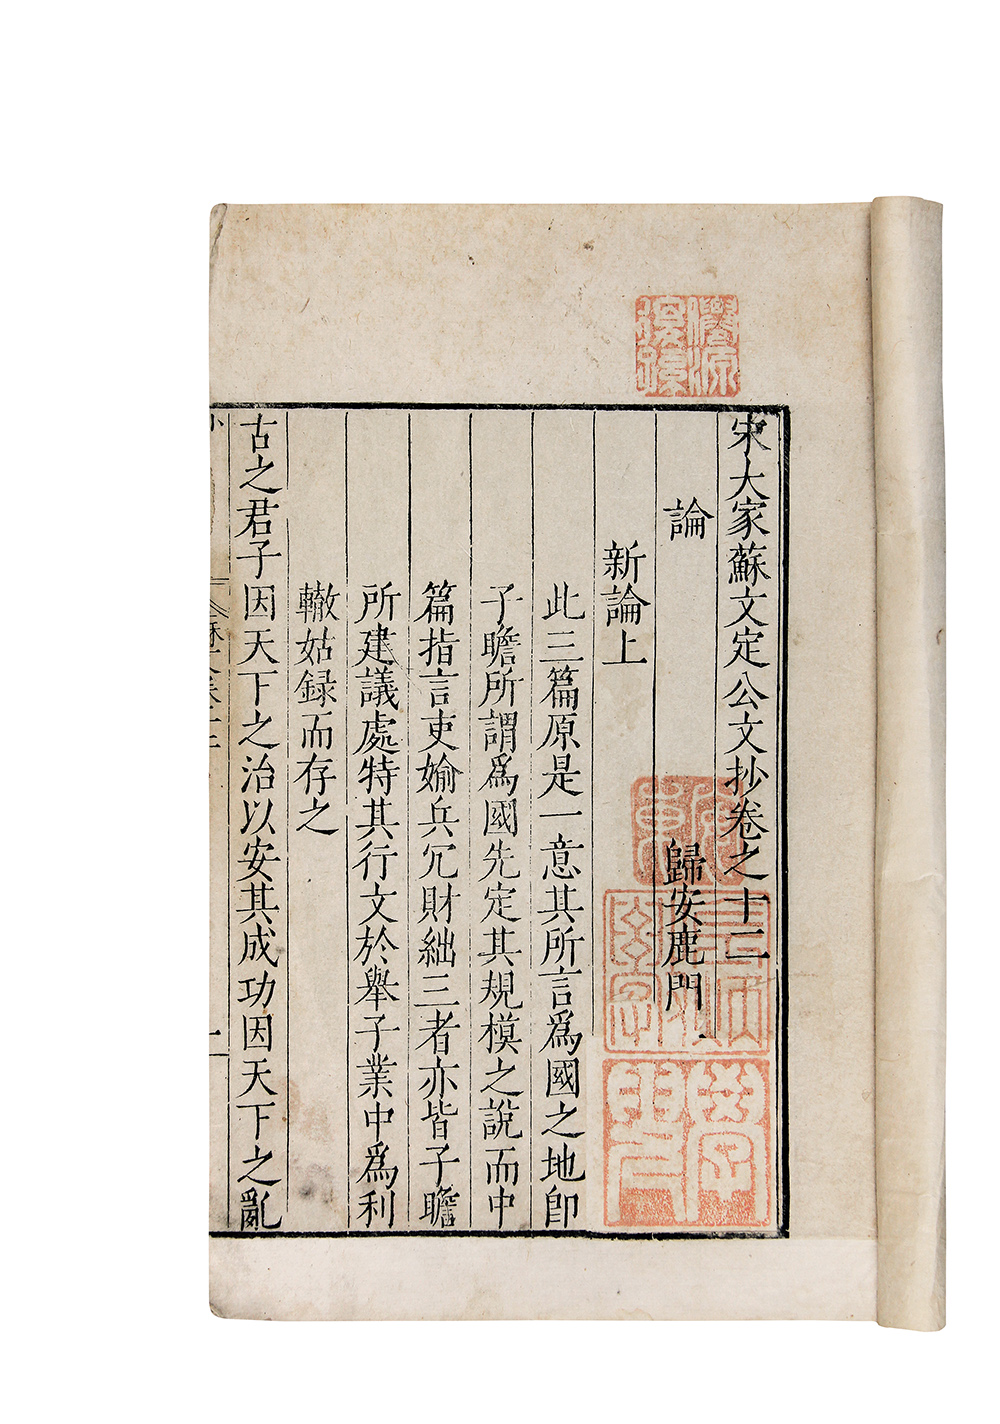 宋大家蘇文定公文抄卷之十二
論
歸安鹿門
新論上
此三篇原是一意其所言爲國之地卽
子瞻所謂爲國先定其規模之說而中
篇指言吏媮兵冗財絀三者亦皆子瞻
所建議處特其行文於舉子業中爲利
轍姑録而存之
古之君子因天下之治以安其成功因天下之亂